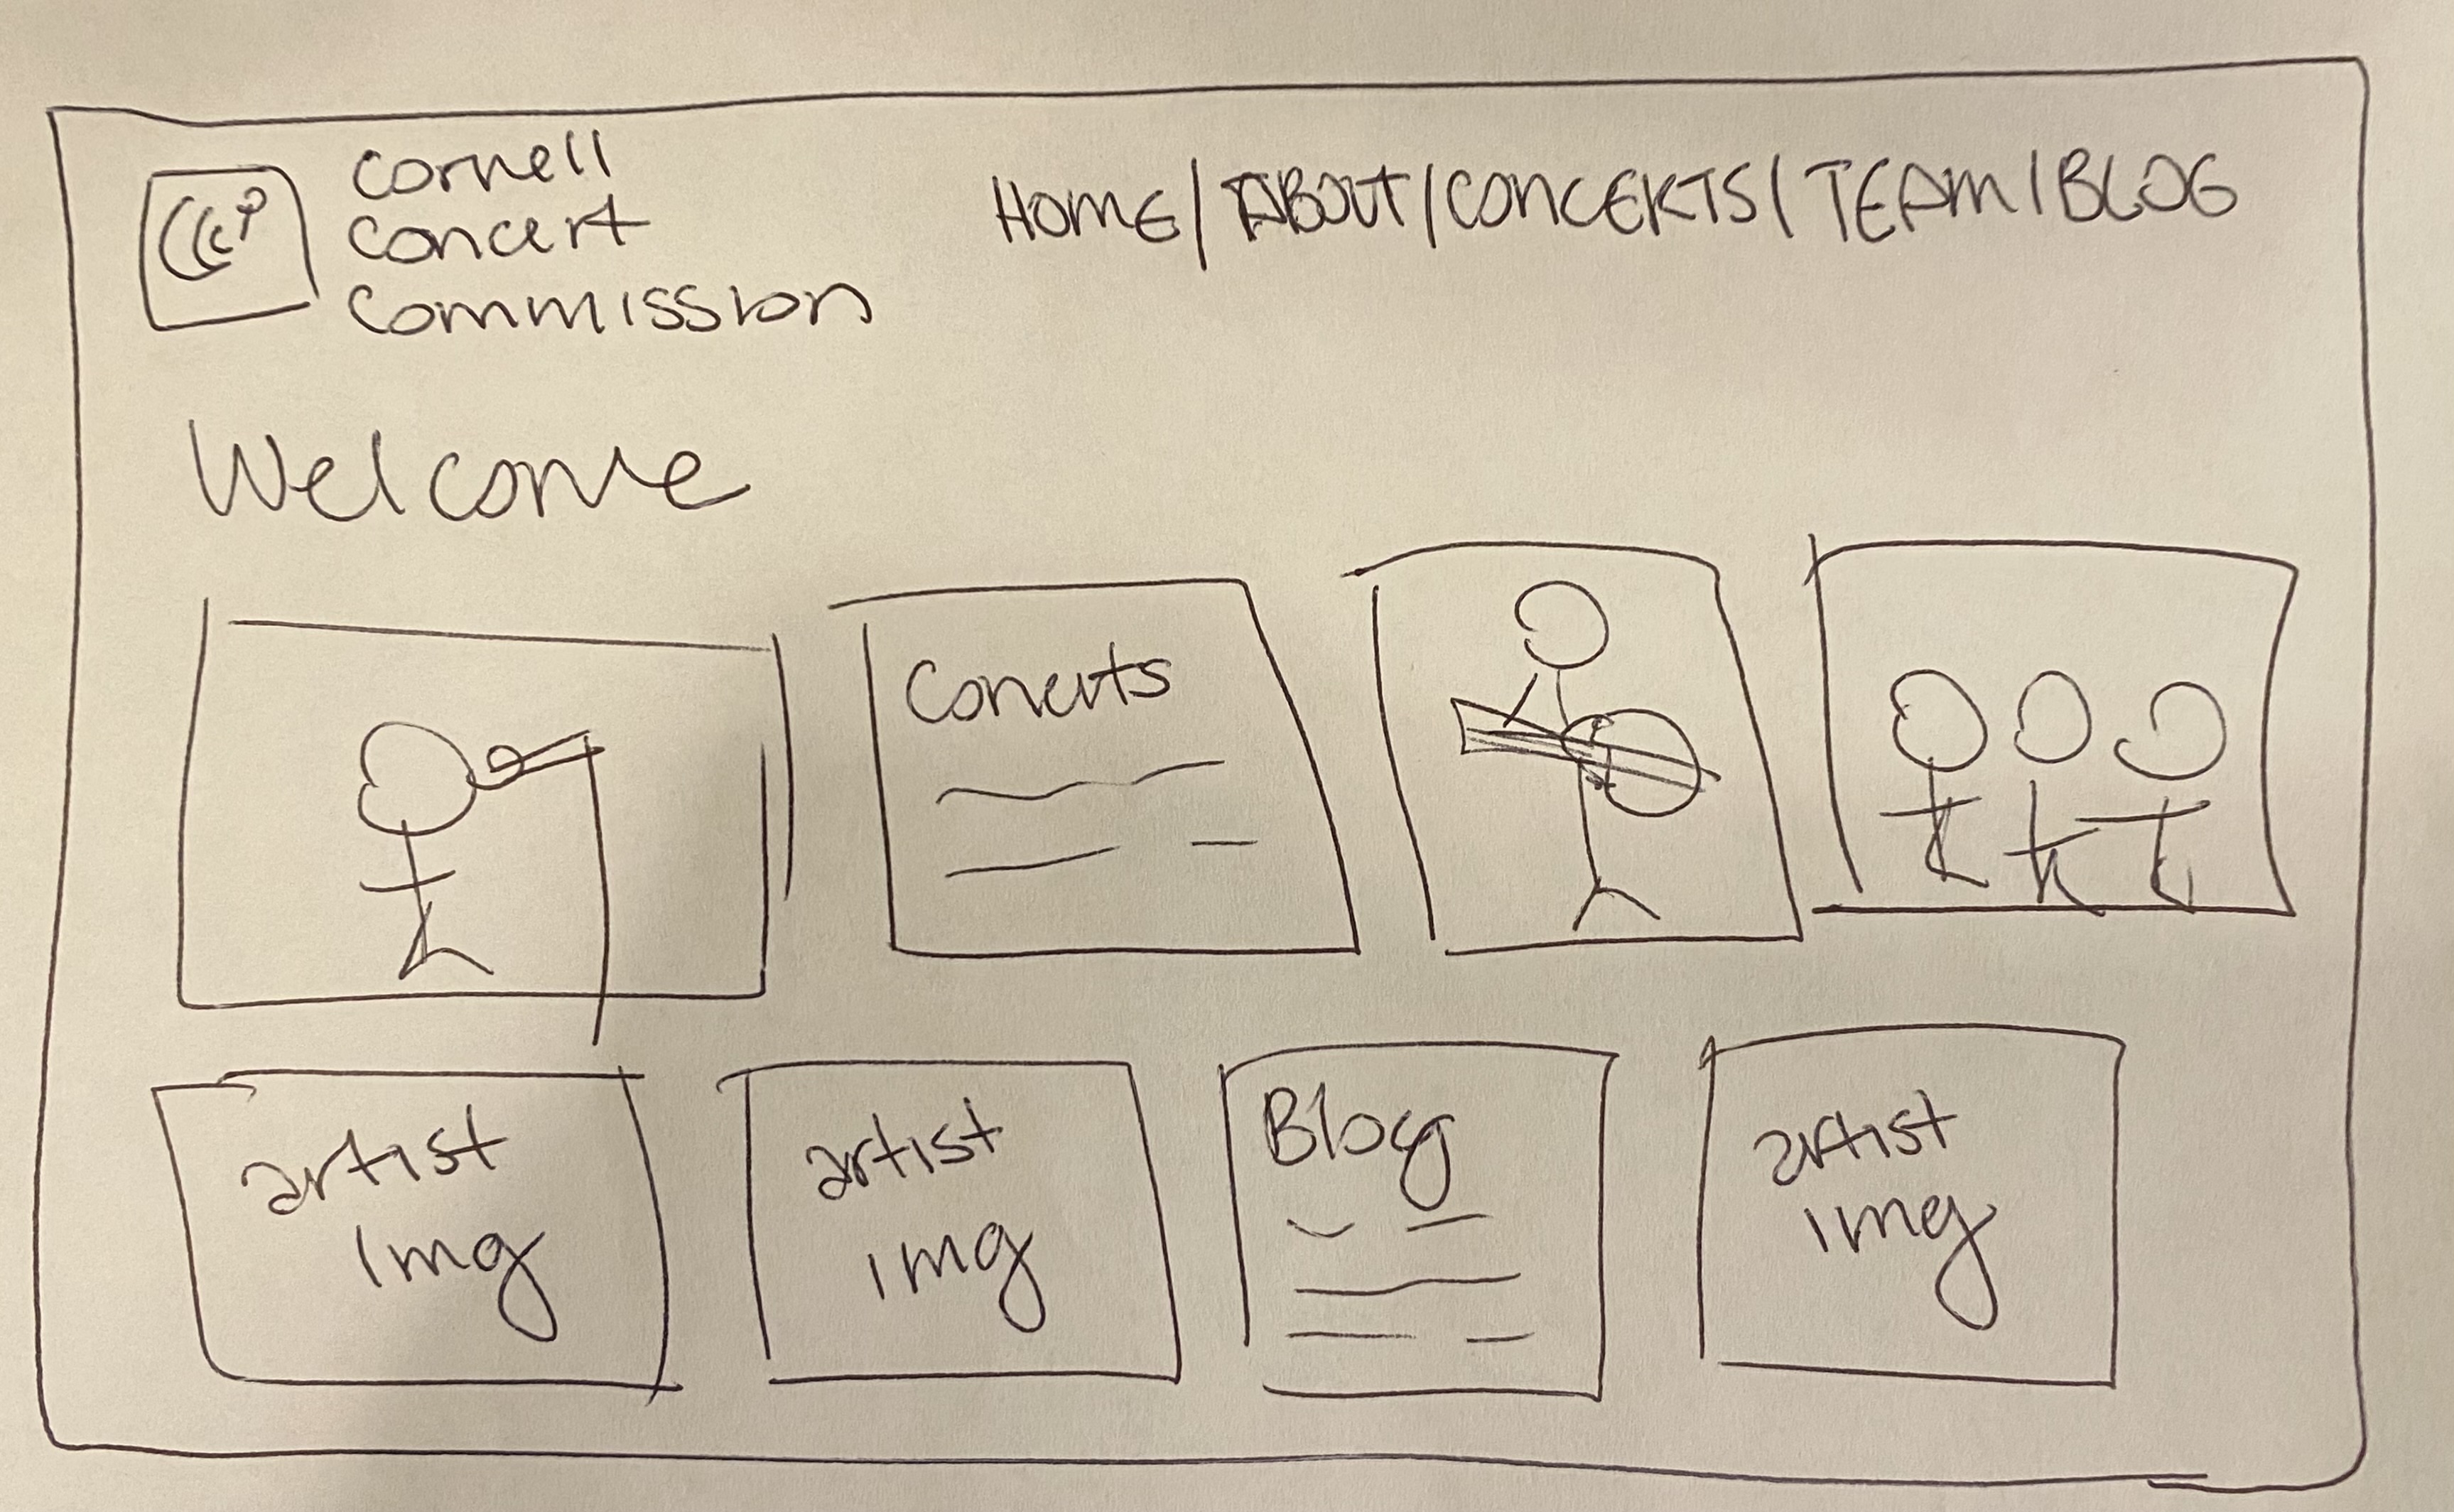 CCC
cornell
concert
commission
HOME/ABOUT/CONCERTS/TEAM/BLOG
Welcome
Concerts
artist
img
artist
img
Blog
artist
img